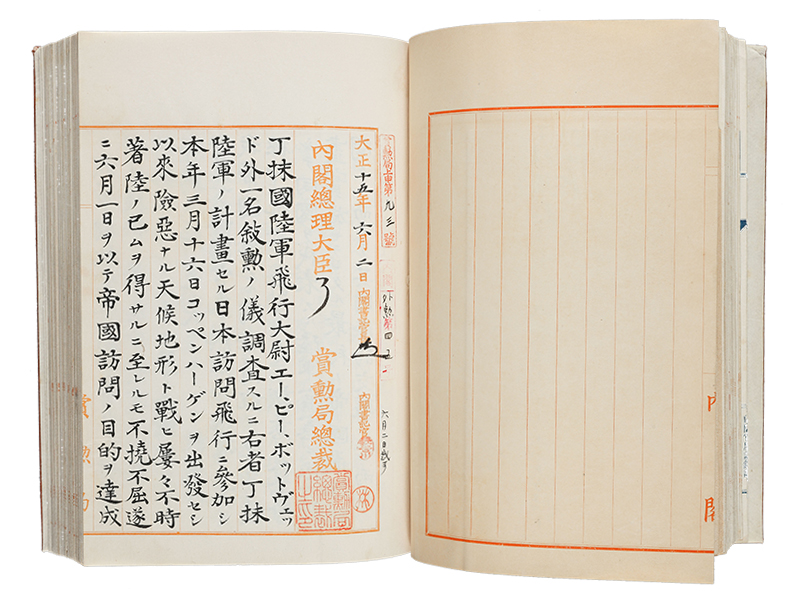 勲局上申第九三號
外勲第四五
六月二日裁可
大正十五年六月二日
內閣總理大臣 賞勲局總裁
賞勲局總裁之印
丁抹國陸軍飛行大尉エー、ピー、ボットヴェッ
ド外一名敍勲ノ儀調査スルニ右者丁抹
陸軍ノ計畫セル日本訪問飛行ニ參加シ
本年三月十六日コッペンハーゲンヲ出發セシ
以來險惡ナル天候地形ト戰ヒ屢々不時
著陸ノ已ムヲ得サルニ至レルモ不撓不屈遂
ニ六月一日ヲ以テ帝國訪問ノ目的ヲ達成
賞勲局
內閣